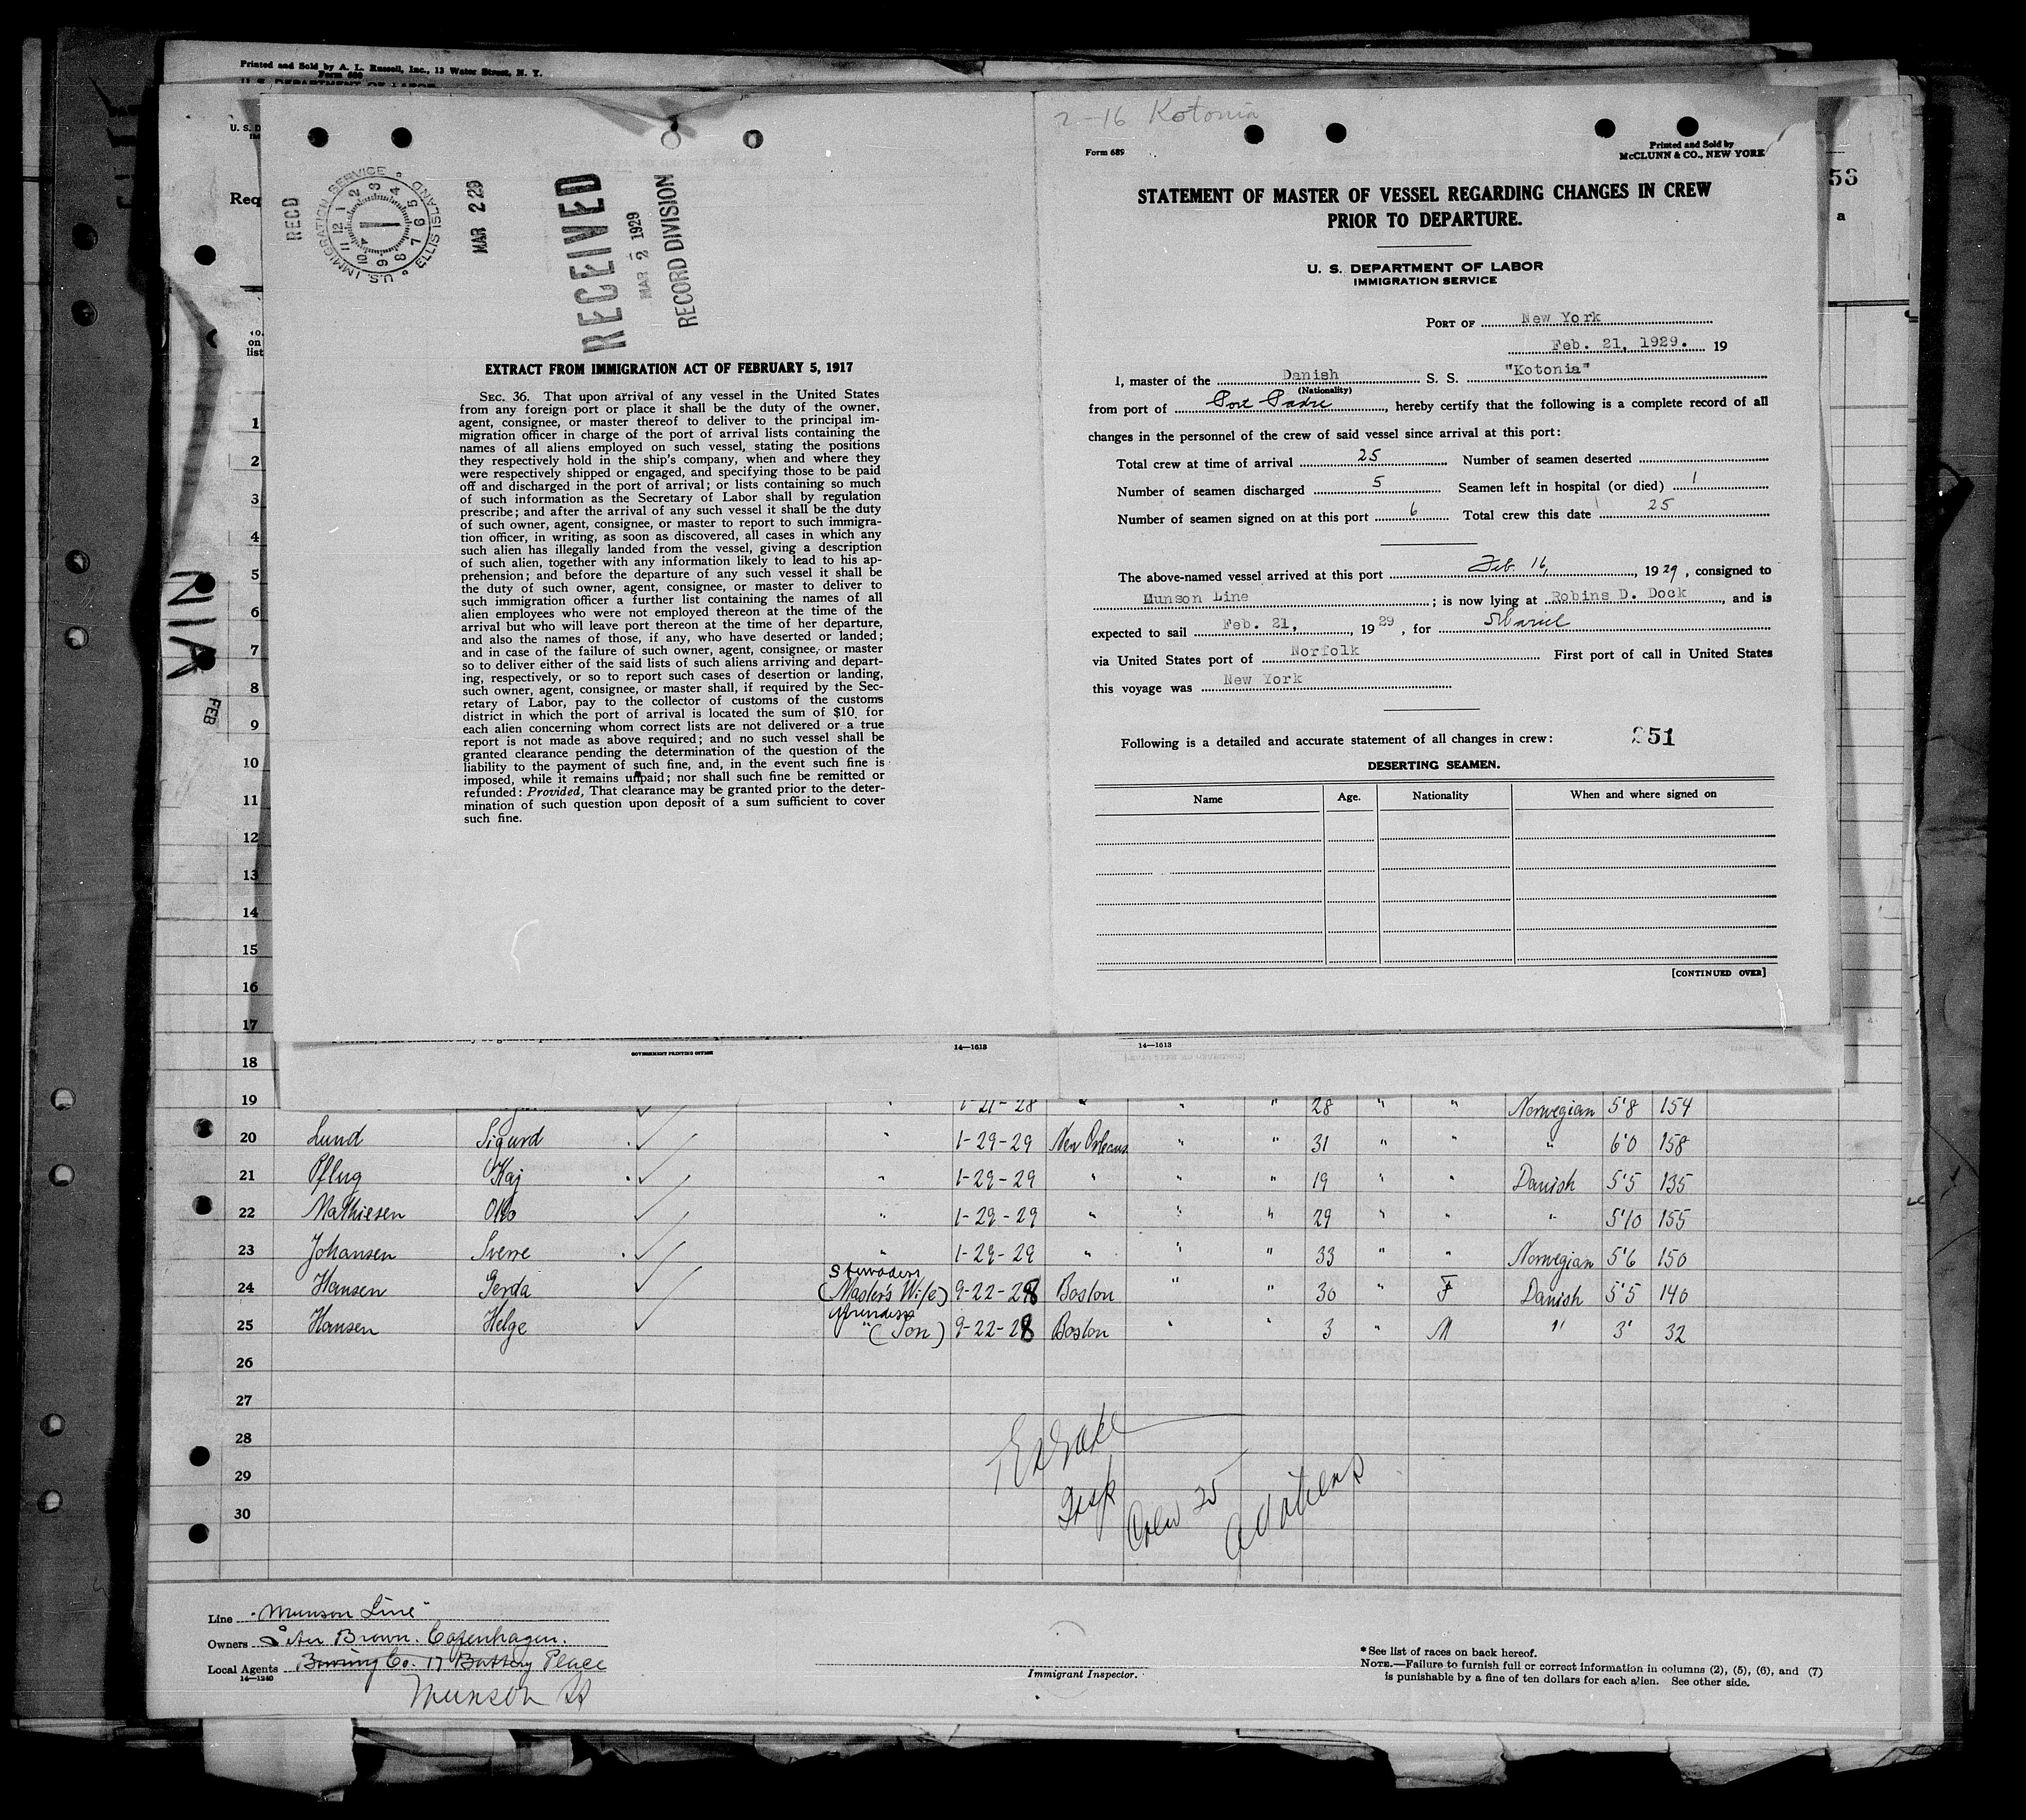 Printed and Sold by A. L. Russell, Inc., 13 Water Street, N. Y.
Form 689
U. S. DEPARTMENT OF LABOR
U. S. D
Req
on
list
RECD
U.S. IMMIGRATION SERVICE
ELLIS ISLAND
MAR 2 29
RECEIVED
MAR 2 1929
RECORD DIVISION
EXTRACT FROM IMMIGRATION ACT OF FEBRUARY 5, 1917
SEC. 36. That upon arrival of any vessel in the United States
from any foreign port or place it shall be the duty of the owner,
agent, consignee, or master thereof to deliver to the principal im-
migration officer in charge of the port of arrival lists containing the
names of all aliens employed on such vessel, stating the positions
they respectively hold in the ship's company, when and where they
were respectively shipped or engaged, and specifying those to be paid
off and discharged in the port of arrival; or lists containing so much
of such information as the Secretary of Labor shall by regulation
prescribe; and after the arrival of any such vessel it shall be the duty
of such owner, agent, consignee, or master to report to such immigra-
tion officer, in writing, as soon as discovered, all cases in which any
such alien has illegally landed from the vessel, giving a description
of such alien, together with any information likely to lead to his ap-
prehension; and before the departure of any such vessel it shall be
the duty of such owner, agent, consignee, or master to deliver to
such immigration officer a further list containing the names of all
alien employees who were not employed thereon at the time of the
arrival but who will leave port thereon at the time of her departure,
and also the names of those, if any, who have deserted or landed;
and in case of the failure of such owner, agent, consignee, or master
so to deliver either of the said lists of such aliens arriving and depart-
ing, respectively, or so to report such cases of desertion or landing,
such owner, agent, consignee, or master shall, if required by the Sec-
retary of Labor, pay to the collector of customs of the customs
district in which the port of arrival is located the sum of $10 for
each alien concerning whom correct lists are not delivered or a true
report is not made as above required; and no such vessel shall be
granted clearance pending the determination of the question of the
liability to the payment of such fine, and, in the event such fine is
imposed, while it remains unpaid; nor shall such fine be remitted or
refunded: Provided, That clearance may be granted prior to the deter-
mination of such question upon deposit of a sum sufficient to cover
such fine.
2-16 Kotonia
Form 689
Printed and Sold by
McCLUNN & CO., NEW YORK
STATEMENT OF MASTER OF VESSEL REGARDING CHANGES IN CREW
PRIOR TO DEPARTURE.
U. S. DEPARTMENT OF LABOR
IMMIGRATION SERVICE
PORT OF New York
Feb. 21, 1929. 19
I, master of the Danish S. S. "Kotonia"
(Nationality)
from port of Port Padre, hereby certify that the following is a complete record of all
changes in the personnel of the crew of said vessel since arrival at this port:
Total crew at time of arrival 25 Number of seamen deserted
Number of seamen discharged 5 Seamen left in hospital (or died) 1
Number of seamen signed on at this port 6 Total crew this date 25
The above-named vessel arrived at this port Feb. 16, 1929, consigned to
Munson Line; is now lying at Robins D. Dock, and is
expected to sail Feb. 21, 1929, for
via United States port of Norfolk First port of call in United States
this voyage was New York
Following is a detailed and accurate statement of all changes in crew: 251
DESERTING SEAMEN.
Name Age. Nationality When and where signed on
[CONTINUED OVER]
53
a
NIA
FEB
1
2
3
4
5
6
7
8
9
10
11
12
13
14
15
16
17
18
GOVERNMENT PRINTING OFFICE 14—1613 14—1613
19 1-21-28 " " " 28 " " Norwegian 5'8 154
20 Lund Sigurd " 1-29-29 New Orleans " " 31 " " " 6'0 158
21 Pflug Kaj " 1-29-29 " " " 19 " " Danish 5'5 135
22 Mathiesen Otto " 1-29-29 " " " 29 " " " 5'10 155
23 Johansen Sverre " 1-29-29 " " " 33 " " Norwegian 5'6 150
24 Hansen Gerda (Master's Wife) 9-22-28 Boston " " 30 " F Danish 5'5 140
25 Hansen Helge " (Son) 9-22-28 Boston " " 3 " M " 3' 32
26
27
28
29
30
Insp
Crew 25
Line "Munson Line"
Owners Peter Brown. Copenhagen.
Local Agents Bowring Co. 17 Battery Place
14—1240
Munson
Immigrant Inspector.
* See list of races on back hereof.
NOTE.—Failure to furnish full or correct information in columns (2), (5), (6), and (7)
is punishable by a fine of ten dollars for each alien. See other side.